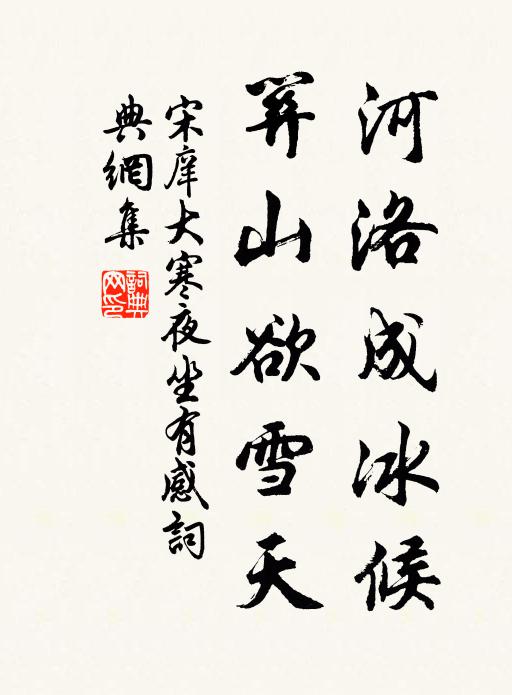 河洛成冰候
關山欲雪天
宋庠大寒夜坐有感詞
典網集
詞典
网印